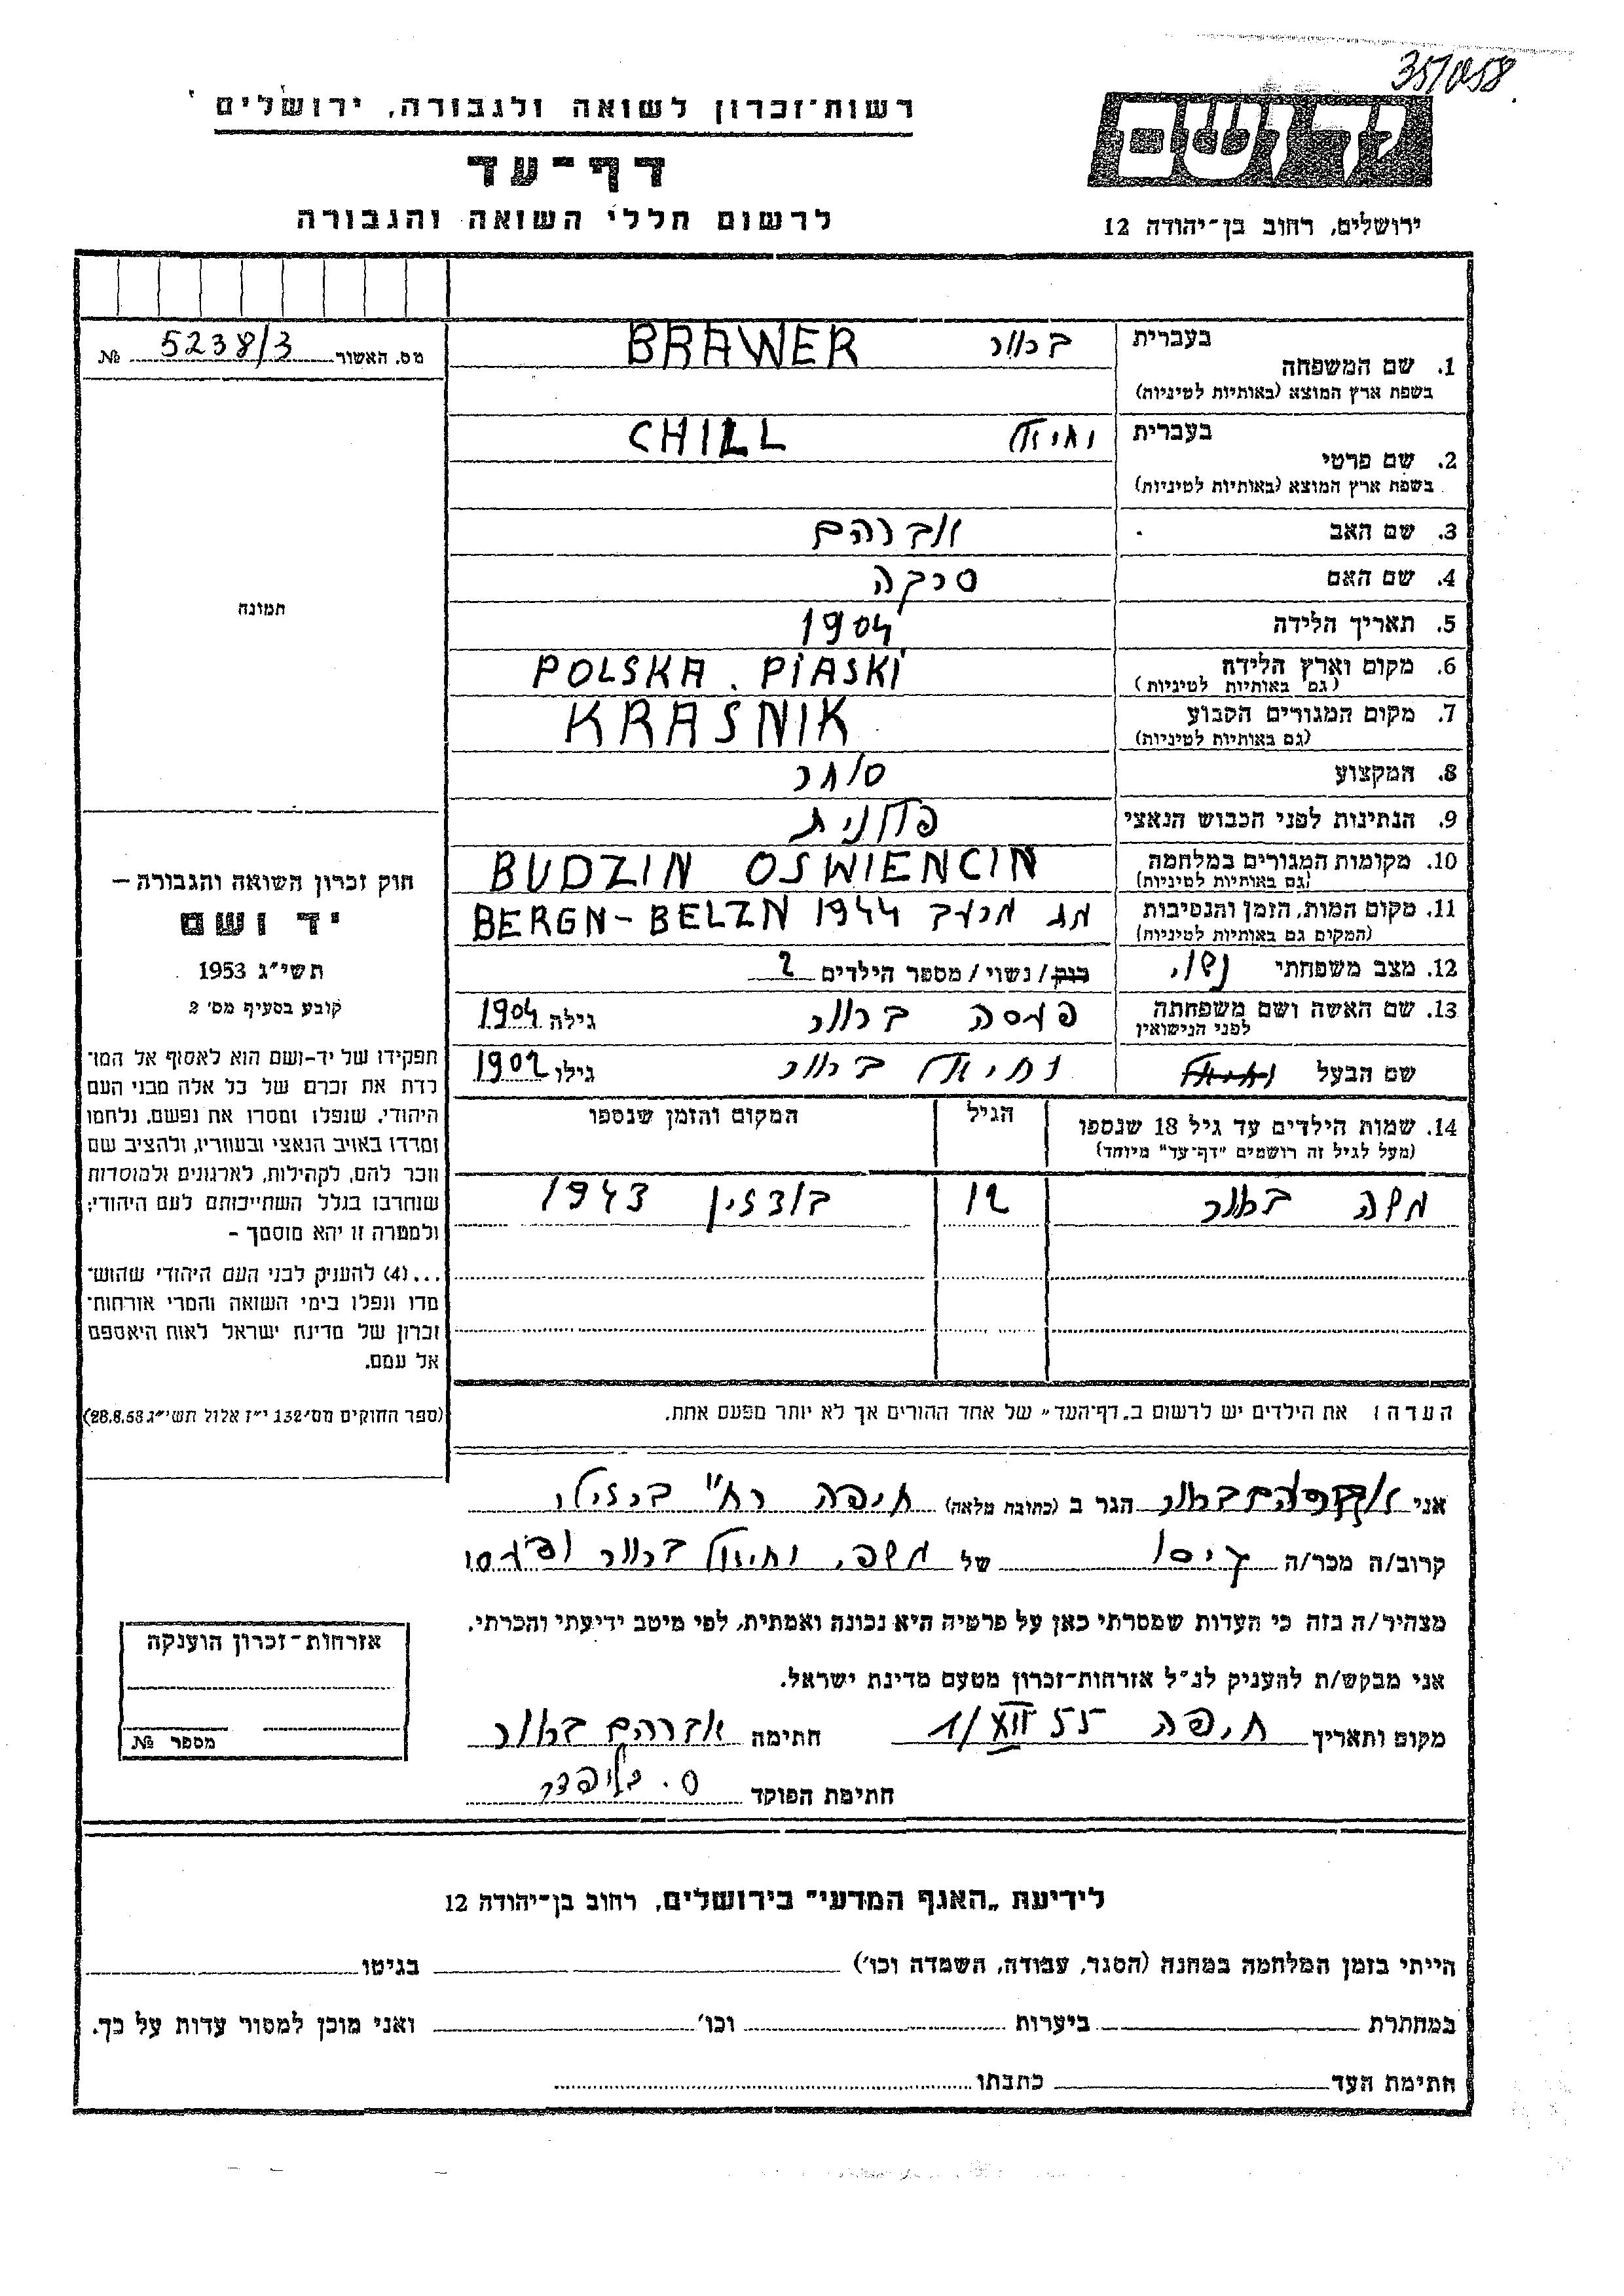 357058
רשות־זכרון לשואה ולגבורה, ירושלים
דף־עד
לרשום חללי השואה והגבורה
ידושם
ירושלים, רחוב בן־יהודה 12
מס. האשור 5238/3 №
תמונה
חוק זכרון השואה והגבורה —
יד ושם
תשי״ג 1953
קובע בסעיף מס' 2
תפקידו של יד-ושם הוא לאסוף אל המו־
לדת את זכרם של כל אלה מבני העם
היהודי, שנפלו ומסרו את נפשם, נלחמו
ומרדו באויב הנאצי ובעוזריו, ולהציב שם
וזכר להם, לקהילות, לארגונים ולמוסדות
שנחרבו בגלל השתייכותם לעם היהודי;
ולמטרה זו יהא מוסמך -
...(4) להעניק לבני העם היהודי שהוש־
מדו ונפלו בימי השואה והמרי אזרחות־
זכרון של מדינת ישראל לאות היאספם
אל עמם.
(ספר החוקים מס' 132 י״ז אלול תשי״ג 28.8.53)
1. שם המשפחה
בעברית בראור BRAWER
בשפת ארץ המוצא (באותיות לטיניות)
2. שם פרטי
בעברית יחיאל CHILL
בשפת ארץ המוצא (באותיות לטיניות)
3. שם האב אברהם
4. שם האם
5. תאריך הלידה 1904
6. מקום וארץ הלידה POLSKA. PIASKI
(גם באותיות לטיניות)
7. מקום המגורים הקבוע KRASNIK
(גם באותיות לטיניות)
8. המקצוע סוחר
9. הנתינות לפני הכבוש הנאצי פולנית
10. מקומות המגורים במלחמה BUDZIN OSWIENCIN
(גם באותיות לטיניות)
11. מקום המות, הזמן והנסיבות מת מרעב 1944 BERGN-BELZN
(המקום גם באותיות לטיניות)
12. מצב משפחתי נשוי רוק / נשוי / מספר הילדים 2
13. שם האשה ושם משפחתה בראור גילה 1904
לפני הנישואין
שם הבעל יחיאל יחיאל בראור גילו 1902
14. שמות הילדים עד גיל 18 שנספו הגיל המקום והזמן שנספו
(מעל לגיל זה רושמים "דף־עד" מיוחד)
משה בראור 12 בודזין 1943
הערה: את הילדים יש לרשום ב„דף־העד״ של אחד ההורים אך לא יותר מפעם אחת.
אני אברהם בראור הגר ב (כתובת מלאה) חיפה רח" ברזילי
קרוב/ה מכר/ה גיסו של משה, יחיאל בראור
מצהיר/ה בזה כי העדות שמסרתי כאן על פרטיה היא נכונה ואמתית, לפי מיטב ידיעתי והכרתי.
אני מבקש/ת להעניק לנ״ל אזרחות-זכרון מטעם מדינת ישראל.
מקום ותאריך חיפה 1/XII 55 חתימה אברהם בראור
חתימת הפוקד
אזרחות־זכרון הוענקה
מספר №
לידיעת „האגף המדעי״ בירושלים, רחוב בן־יהודה 12
הייתי בזמן המלחמה במחנה (הסגר, עבודה, השמדה וכו') בגיטו
במחתרת ביערות וכו' ואני מוכן למסור עדות על כך.
חתימת העד כתבתו